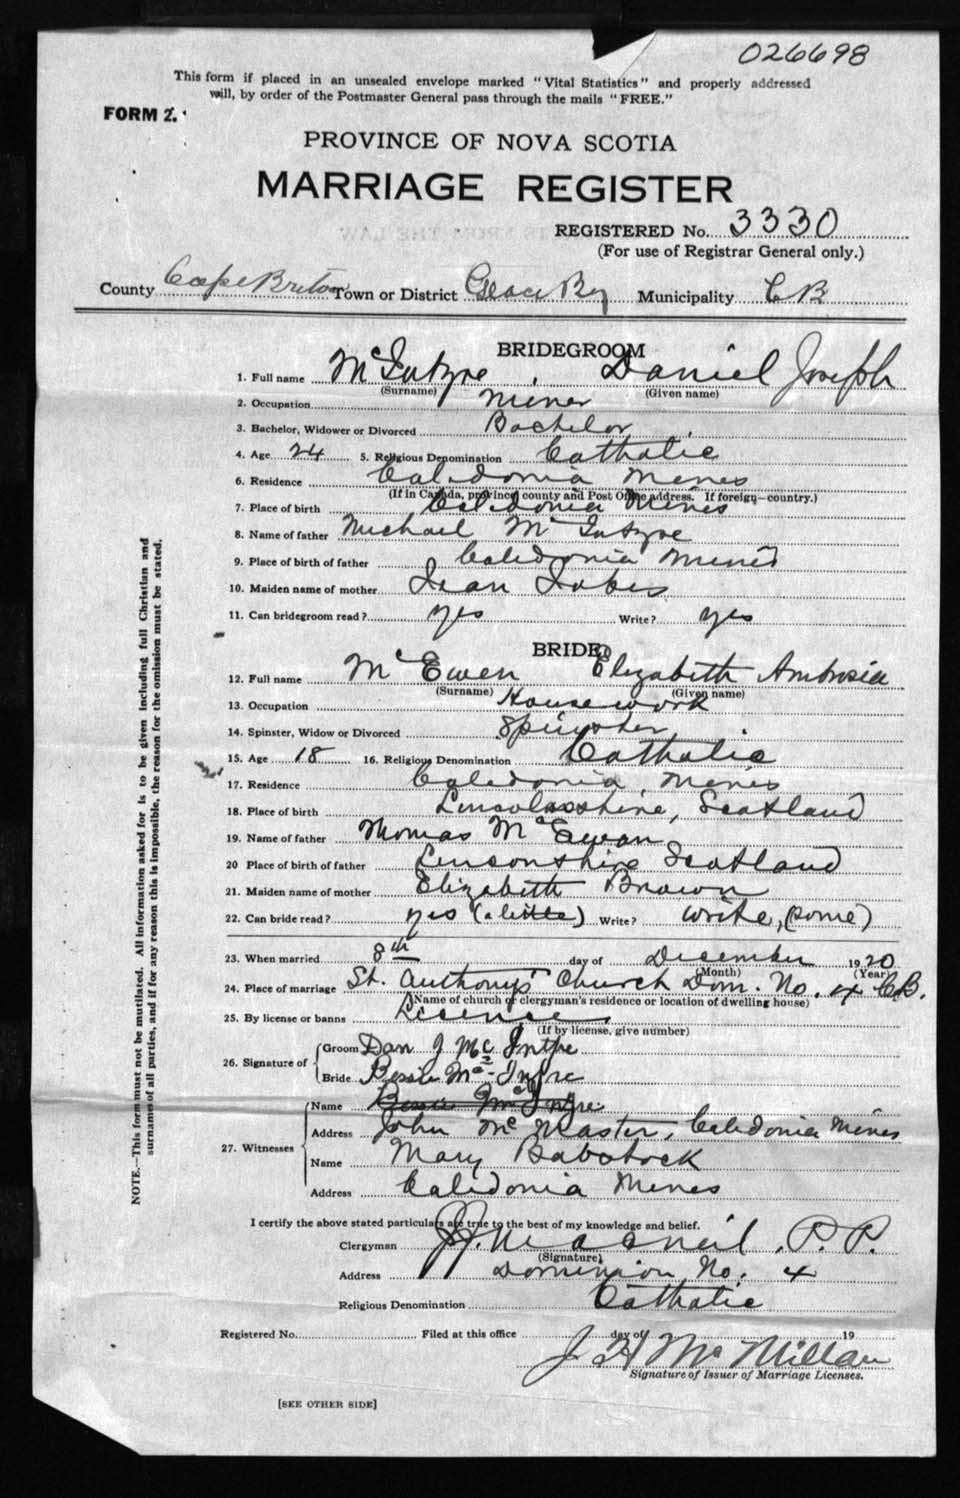 026698
This form if placed in an unsealed envelope marked "Vital Statistics" and properly addressed
will, by order of the Postmaster General pass through the mails "FREE."
FORM 2.
PROVINCE OF NOVA SCOTIA
MARRIAGE REGISTER
REGISTERED No. 3330
(For use of Registrar General only.)
County Cape Breton Town or District Glace Bay Municipality C B
BRIDEGROOM
1. Full name McIntyre, Daniel Joseph
(Surname) (Given name)
2. Occupation Miner
3. Bachelor, Widower or Divorced Bachelor
4. Age 24 5. Religious Denomination Catholic
6. Residence Caledonia Mines
(If in Canada, province, county and Post Office address. If foreign—country.)
7. Place of birth Caledonia Mines
8. Name of father Michael McIntyre
9. Place of birth of father Caledonia Mines
10. Maiden name of mother
11. Can bridegroom read? yes Write? yes
BRIDE
12. Full name McEwen Elizabeth Ambrosia
(Surname) (Given name)
13. Occupation Housework
14. Spinster, Widow or Divorced Spinster
15. Age 18 16. Religious Denomination Catholic
17. Residence Caledonia Mines
18. Place of birth Scotland
19. Name of father Thomas McEwan
20 Place of birth of father Scotland
21. Maiden name of mother Elizabeth Brown
22. Can bride read? yes (a little) Write? write, (some)
23. When married 8th day of December 1920
(Month) (Year)
24. Place of marriage St. Anthony's Church Dom. No. 4 CB.
(Name of church or clergyman's residence or location of dwelling house)
25. By license or banns License
(If by license, give number)
26. Signature of Groom Dan J McIntre
Bride Bessie McIntre
27. Witnesses Name Bessie McIntre
Address John McMaster, Caledonia Mines
Name Mary Babstock
Address Caledonia Mines
I certify the above stated particulars are true to the best of my knowledge and belief.
Clergyman MacNeil, P. P.
(Signature)
Address Dominion No. 4
Religious Denomination Catholic
Registered No. Filed at this office day of 19
J H McMillan
Signature of Issuer of Marriage Licenses.
[SEE OTHER SIDE]
NOTE.—This form must not be mutilated. All information asked for is to be given including full Christian and
surnames of all parties, and if for any reason this is impossible, the reason for the omission must be stated.